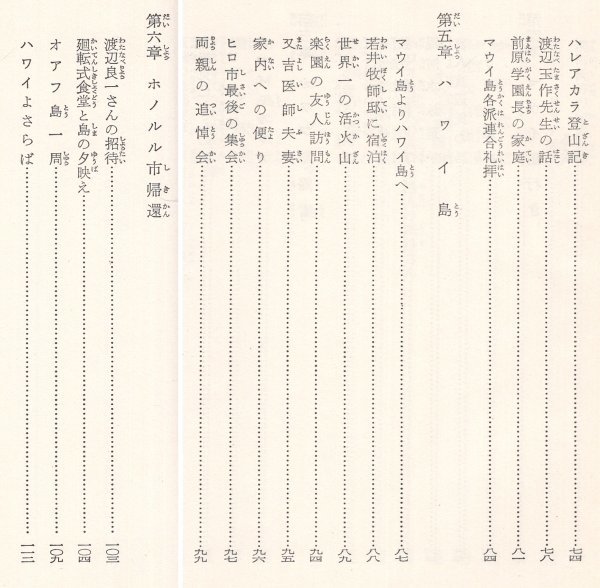 ハレアカラ登山記……七四
渡辺玉作先生の話……七八
前原学園長の家庭……八一
マウイ島各派連合礼拝……八四
第五章 ハワイ島
マウイ島よりハワイ島へ……八七
若井牧師邸に宿泊……八八
世界一の活火山……八九
楽園の友人訪問……九四
又吉医師夫妻……九五
家内への便り……九六
ヒロ市最後の集会……九七
両親の追悼会……九九
第六章 ホノルル市帰還
渡辺良一さんの招待……一〇三
廻転式食堂と島の夕映え……一〇四
オアフ島一周……一〇九
ハワイよさらば……一一三